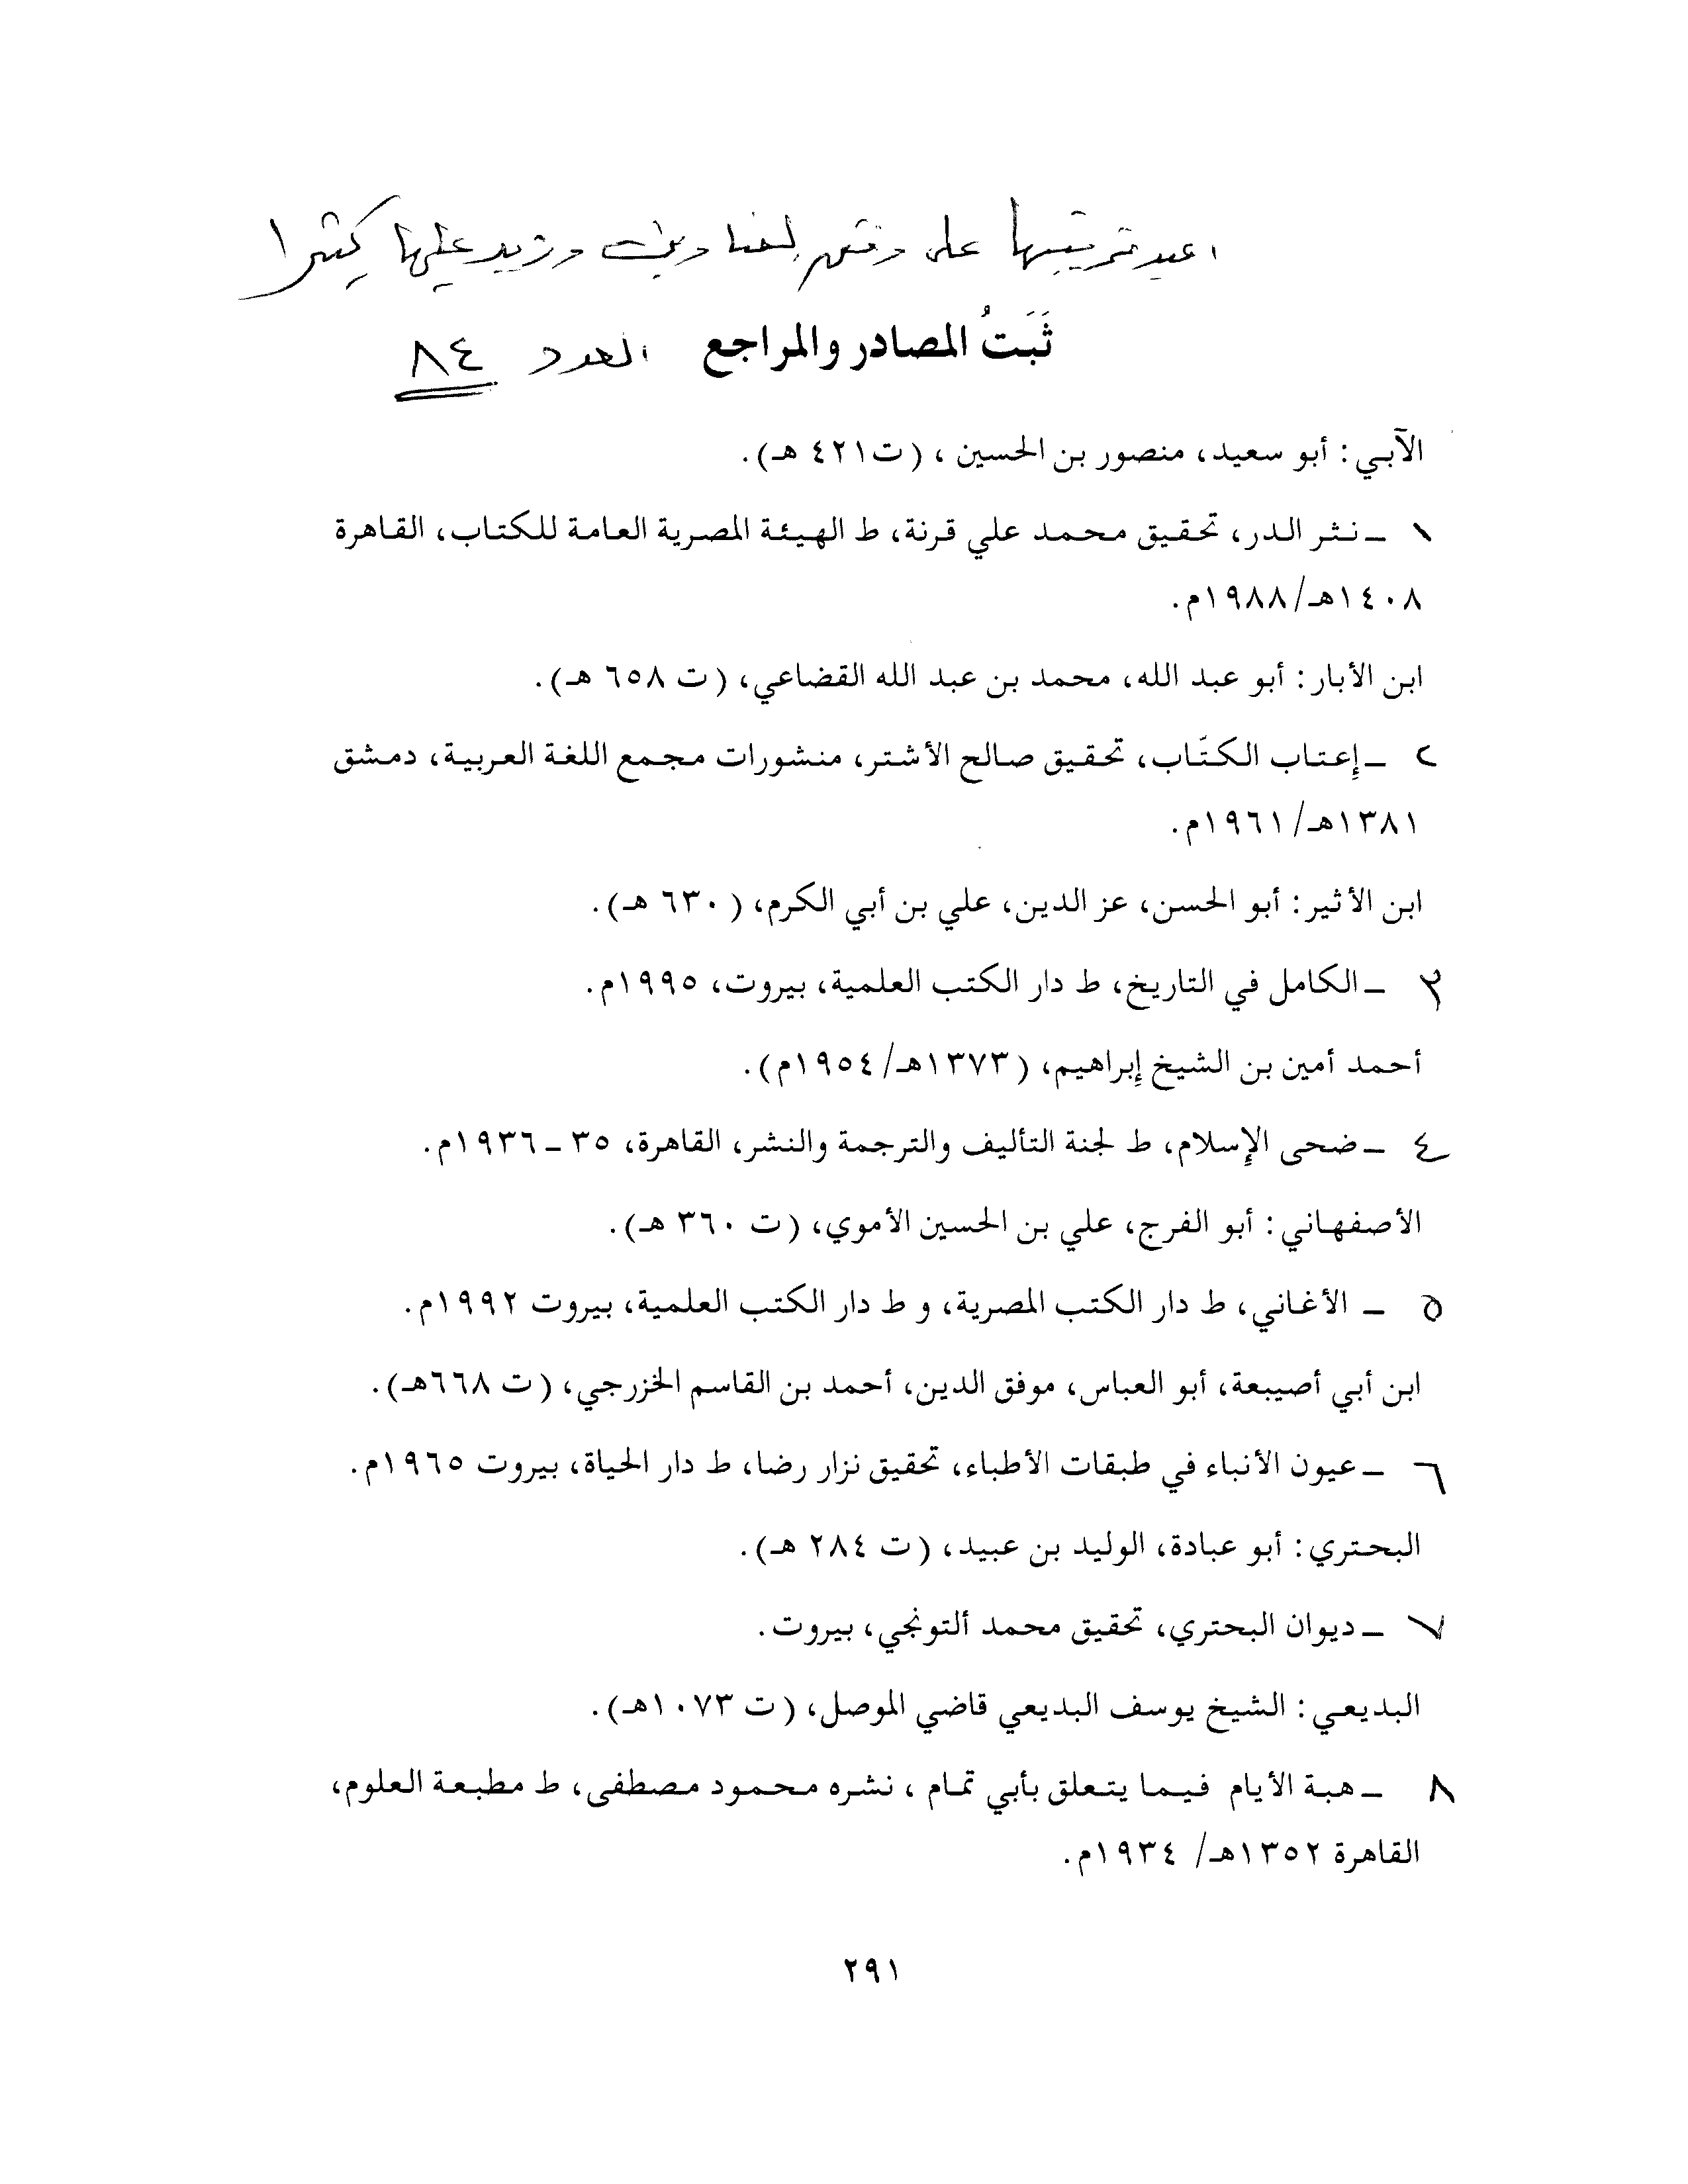 اعيد ترتيبها على وفق العناوين وزيد عليها كثيرا
ثَبَتُ المصادر والمراجع العدد ٨٤
الآبي: أبو سعيد، منصور بن الحسين ، (ت٤٢١ هـ).
١ ـ نثر الدر، تحقيق محمد علي قرنة، ط الهيئة المصرية العامة للكتاب، القاهرة
١٤٠٨هـ/١٩٨٨م.
ابن الأبار: أبو عبد الله، محمد بن عبد الله القضاعي، (ت ٦٥٨ هـ).
٢ ـ إعتاب الكتّاب، تحقيق صالح الأشتر، منشورات مجمع اللغة العربية، دمشق
١٣٨١هـ/١٩٦١م.
ابن الأثير: أبو الحسن، عز الدين، علي بن أبي الكرم، (٦٣٠ هـ).
٣ ـ الكامل في التاريخ، ط دار الكتب العلمية، بيروت، ١٩٩٥م.
أحمد أمين بن الشيخ إبراهيم، (١٣٧٣هـ/١٩٥٤م).
٤ ـ ضحى الإسلام، ط لجنة التأليف والترجمة والنشر، القاهرة، ٣٥ ـ ١٩٣٦م.
الأصفهاني: أبو الفرج، علي بن الحسين الأموي، (ت ٣٦٠ هـ).
٥ ـ الأغاني، ط دار الكتب المصرية، و ط دار الكتب العلمية، بيروت ١٩٩٢م.
ابن أبي أصيبعة، أبو العباس، موفق الدين، أحمد بن القاسم الخزرجي، (ت ٦٦٨هـ).
٦ ـ عيون الأنباء في طبقات الأطباء، تحقيق نزار رضا، ط دار الحياة، بيروت ١٩٦٥م.
البحتري: أبو عبادة، الوليد بن عبيد، (ت ٢٨٤ هـ).
٧ ـ ديوان البحتري، تحقيق محمد ألتونجي، بيروت.
البديعي: الشيخ يوسف البديعي قاضي الموصل، (ت ١٠٧٣هـ).
٨ ـ هبة الأيام فيما يتعلق بأبي تمام ، نشره محمود مصطفى، ط مطبعة العلوم،
القاهرة ١٣٥٢هـ/ ١٩٣٤م.
٢٩١